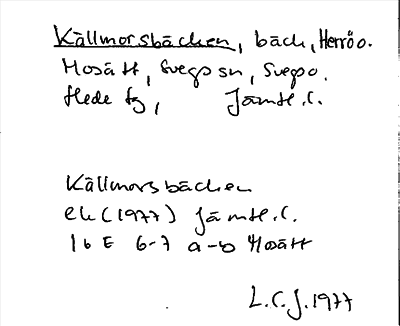 Källmorsbäcken, bäck, Herrö o.
Mosätt, Svegs sn, Svegs o.
Hede tg, Jämtl. l.
Källmorsbäcken
ek (1977) Jämtl. l.
16 E 6-7 a-b Mosätt
L.C.J. 1977